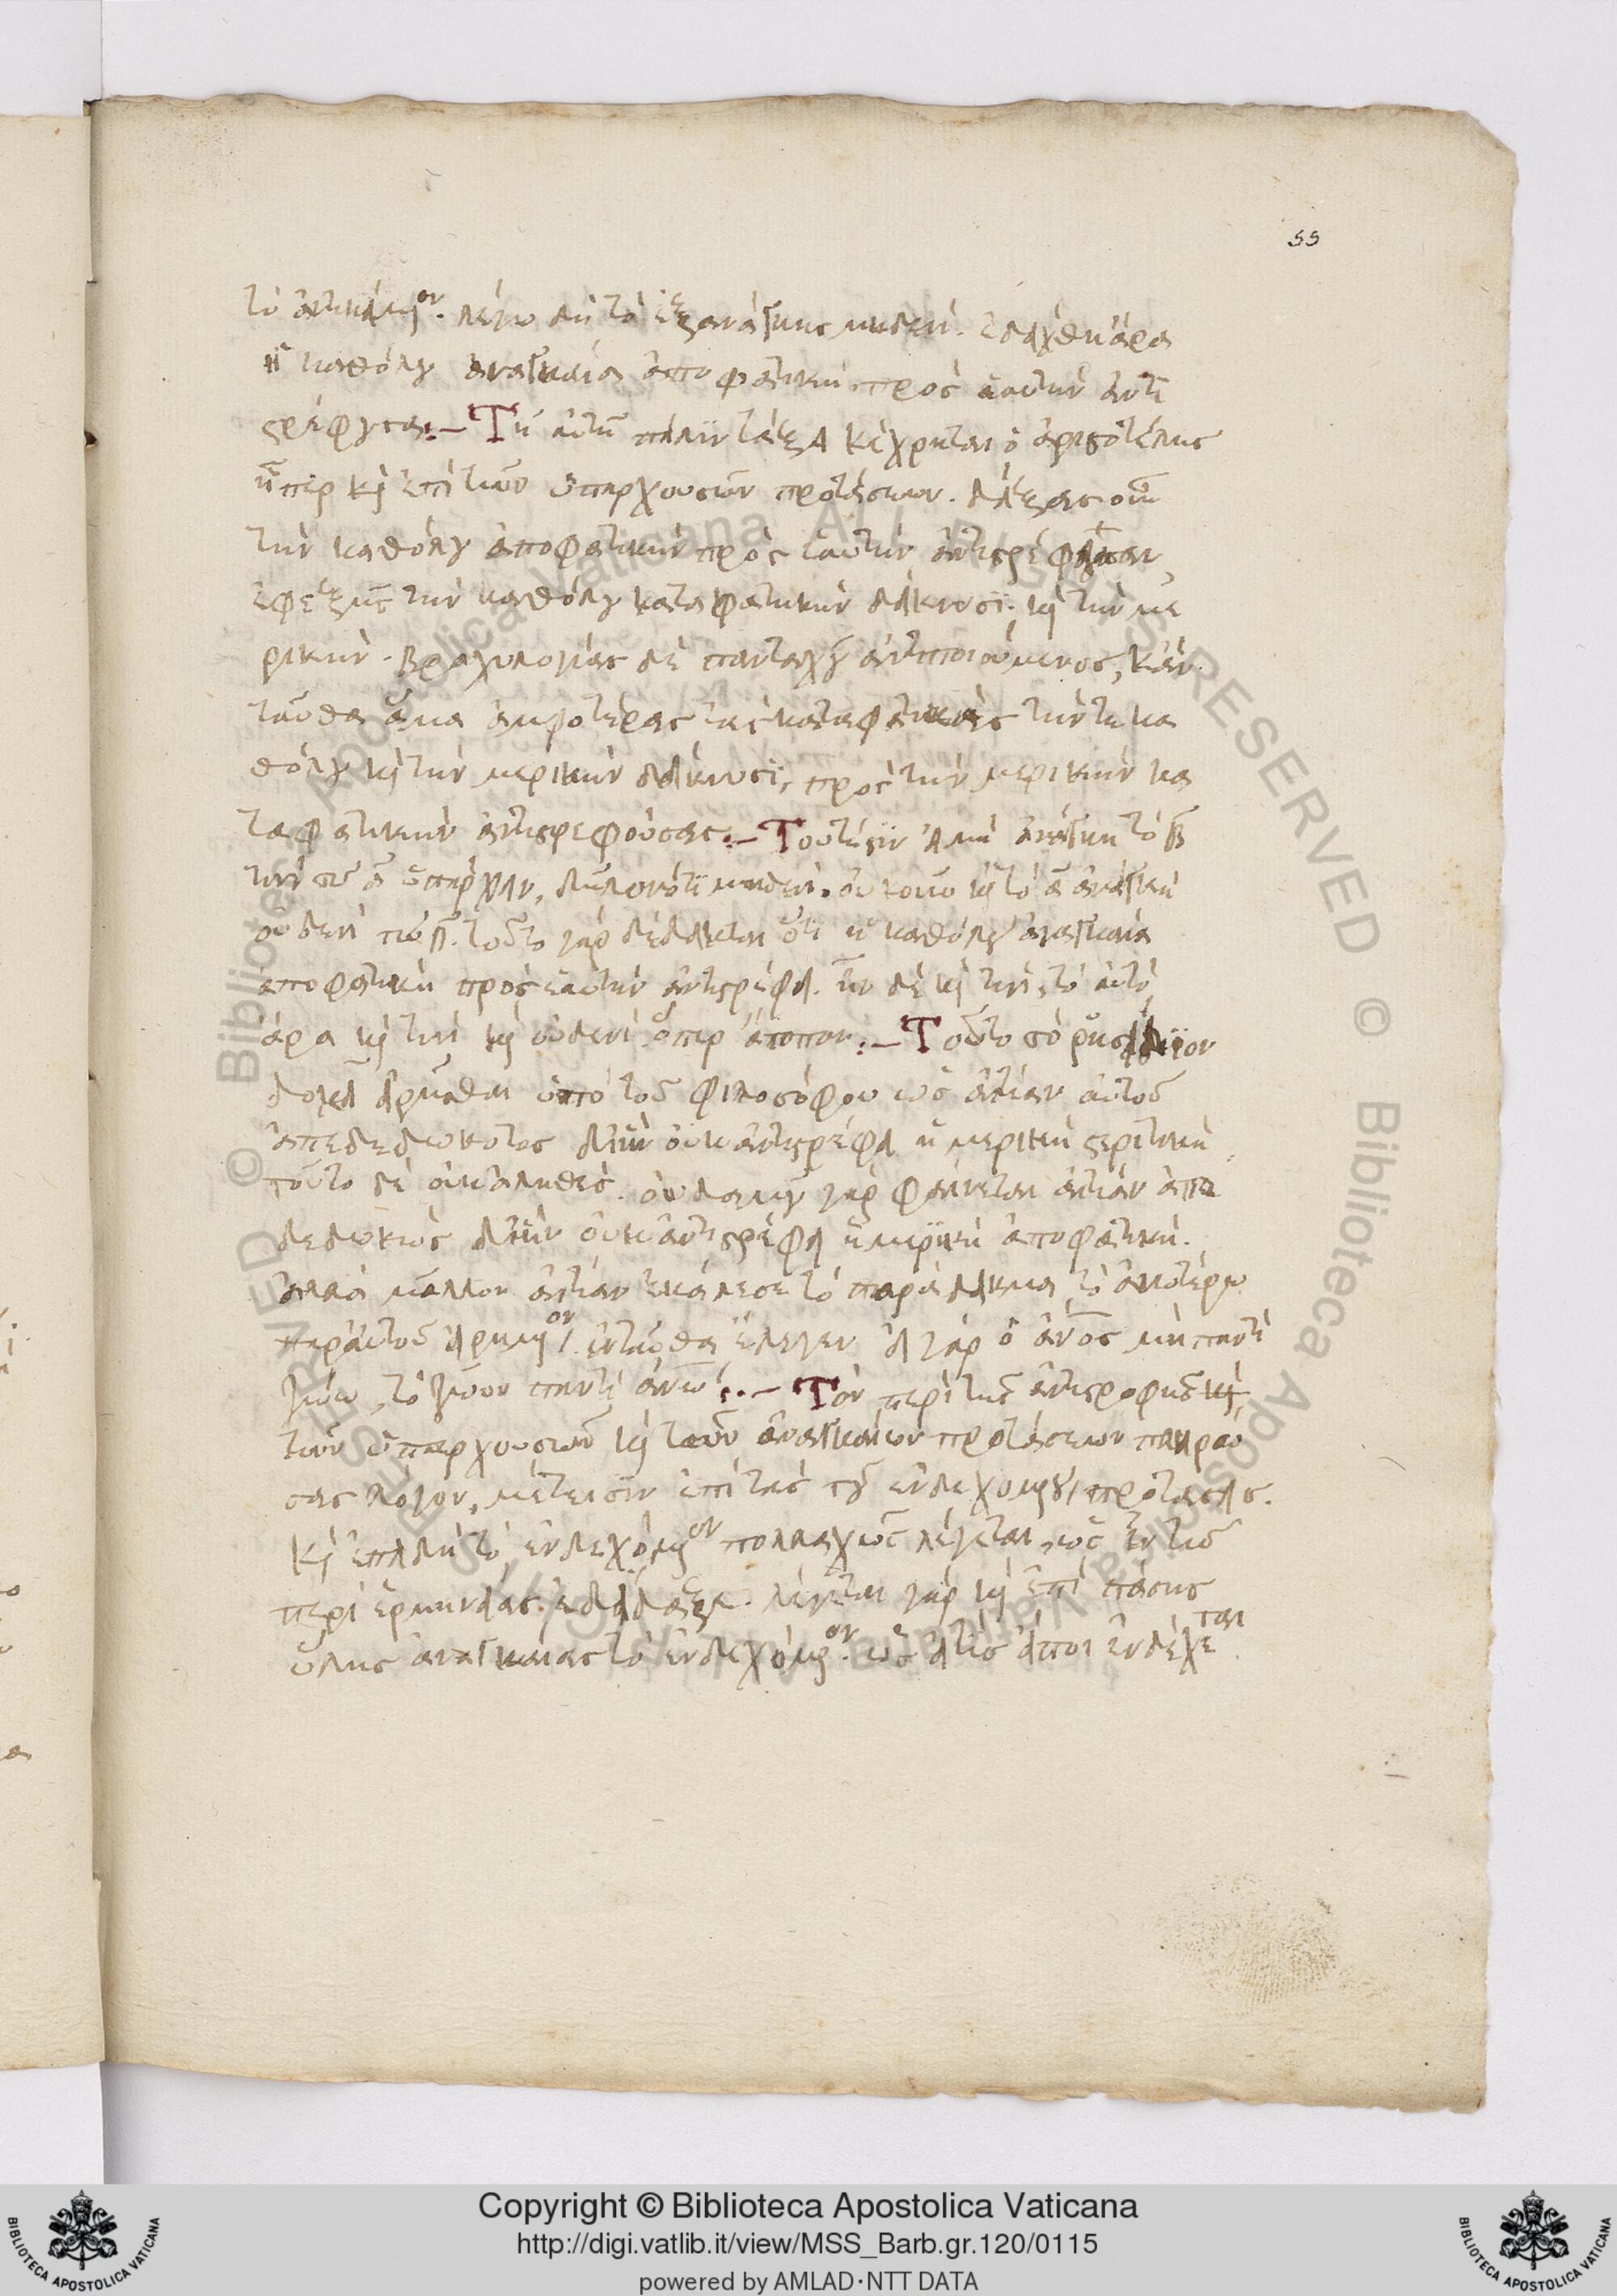 55
τὸ ἀντικείμενον. λέγω δὴ τὸ ἐξανάγκης μηδενί. ἐδείχθη ἄρα
ἡ καθόλου ἀναγκαία ἀποφατικὴ πρὸς ἑαυτὴν ἀντι
στρέφουσα:– Τῇ αὐτῇ πάλιν τάξει κέχρηται ὁ ἀριστοτέλης
ᾗπερ καὶ ἐπὶ τῶν ὑπαρχουσῶν προτάσεων. δείξας οὖν
τὴν καθόλου ἀποφατικὴν πρὸς ἑαυτὴν ἀντιστρέφουσαν,
ἐφεξῆς τὴν καθόλου καταφατικὴν δείκνυσι. καὶ τὴν με
ρικήν. βραχυλογίας δὲ πανταχοῦ ἀντιποιούμενος, κἀν
ταῦθα ἅμα ἀμφοτέρας τὰς καταφατικὰς τήν τε κα
θόλου καὶ τὴν μερικὴν δείκνυσι, πρὸς τὴν μερικὴν κα
ταφατικὴν ἀντιστρεφούσας:– Τουτέστιν εἰ μὴ ἀνάγκη τὸ β
τινὶ τῷ α ὑπάρχειν, δηλονότι μηδενί. οὐκοῦν καὶ τὸ α ἀνάγκη
οὐδενὶ τῷ β. τοῦτο γὰρ δέδεικται ὅτι ἡ καθόλου ἀναγκαία
ἀποφατικὴ πρὸς ἑαυτὴν ἀντιστρέφει. ἦν δὲ καὶ τινί, τὸ αὐτὸ
ἄρα καὶ τινὶ καὶ οὐδενὶ ὅπερ ἄτοπον:– Τοῦτο τὸ ῥησείδιον
δοκεῖ εἰρῆσθαι ὑπὸ τοῦ φιλοσόφου ὡς αἰτίαν αὐτοῦ
ἀπεδεδωκότος δι' ἣν οὐκ ἀντιστρέφει ἡ μερικὴ στερητικὴ
τοῦτο δὲ οὐκ ἀληθές. οὐδαμοῦ γὰρ φαίνεται αἰτίαν ἀπο
δεδωκὼς δι' ἣν οὐκ ἀντιστρέφει ἡ μερικὴ ἀποφατική.
ἀλλὰ μᾶλλον αἰτίαν ἐκάλεσε τὸ παράδειγμα τὸ ἀνωτέρω
παρ' αὐτοῦ εἰρημένον. ἐνταῦθα ἔλεγεν εἰ γὰρ ὁ ἄνος μὴ παντὶ
ζώῳ, τὸ ζῶον παντὶ ἀνω:– Τὸν περὶ τῆς ἀντιστροφῆς καὶ
τῶν ὑπαρχουσῶν καὶ τῶν ἀναγκαίων προτάσεων πληρώ
σας λόγον, μέτεισιν ἐπὶ τὰς τοῦ ἐνδεχομένου προτάσεις.
καὶ ἐπειδὴ τὸ ἐνδεχόμενον πολλαχῶς λέγεται, ὡς ἐν τῷ
περὶ ἑρμηνείας ἐδίδαξε. λέγεται γὰρ καὶ ἐπὶ πάσης
ὕλης ἀναγκαίας τὸ ἐνδεχόμενον. ὡς εἴ τις εἴποι ἐνδέχεται
Copyright © Biblioteca Apostolica Vaticana
http://digi.vatlib.it/view/MSS_Barb.gr.120/0115
powered by AMLAD·NTT DATA